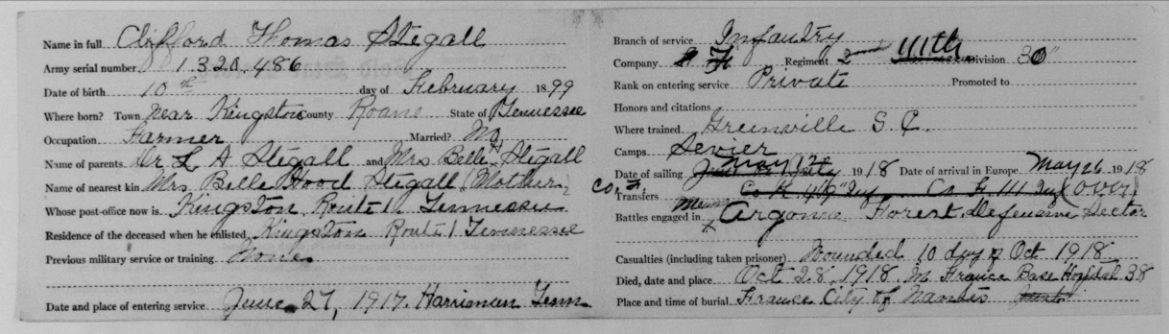 Name in full Clifford Thomas Stegall
Army serial number 1.320.486
Date of birth 10th day of February 1899
Where born? Town Near Kingston County Roane State of Tennessee
Occupation Farmer Married? No
Name of parents Dr L A Stegall and Mrs Belle Stegall
Name of nearest kin Mrs Belle Hood Stegall (Mother)
Whose post-office now is Kingston Route 1. Tennessee
Residence of the deceased when he enlisted, Kingston Route 1. Tennessee
Previous military service or training None
Date and place of entering service June 27, 1917. Harriman Tenn
Branch of service Infantry
Company Regiment 2nd 111th Division 30"
Rank on entering service Private Promoted to
Honors and citations
Where trained Greenville S.C.
Camps Sevier
Date of sailing May 12 1918 Date of arrival in Europe. May 26 1918
Transfers Co K 49 Inf Co F 111 Inf (over)
Battles engaged in Argonne Forest Defensive Sector
Casualties (including taken prisoner) Wounded 10 day of Oct 1918
Died, date and place Oct 28, 1918. In France Base Hospital 38
Place and time of burial France City of Nantes